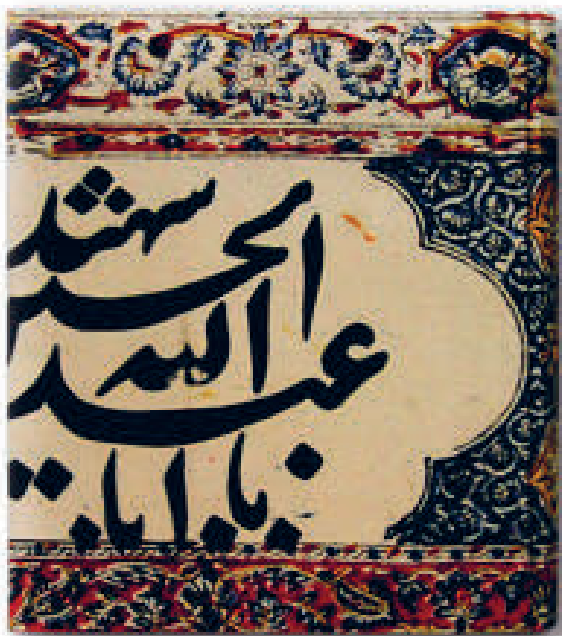 یا ابا
عبد الله
الحسین